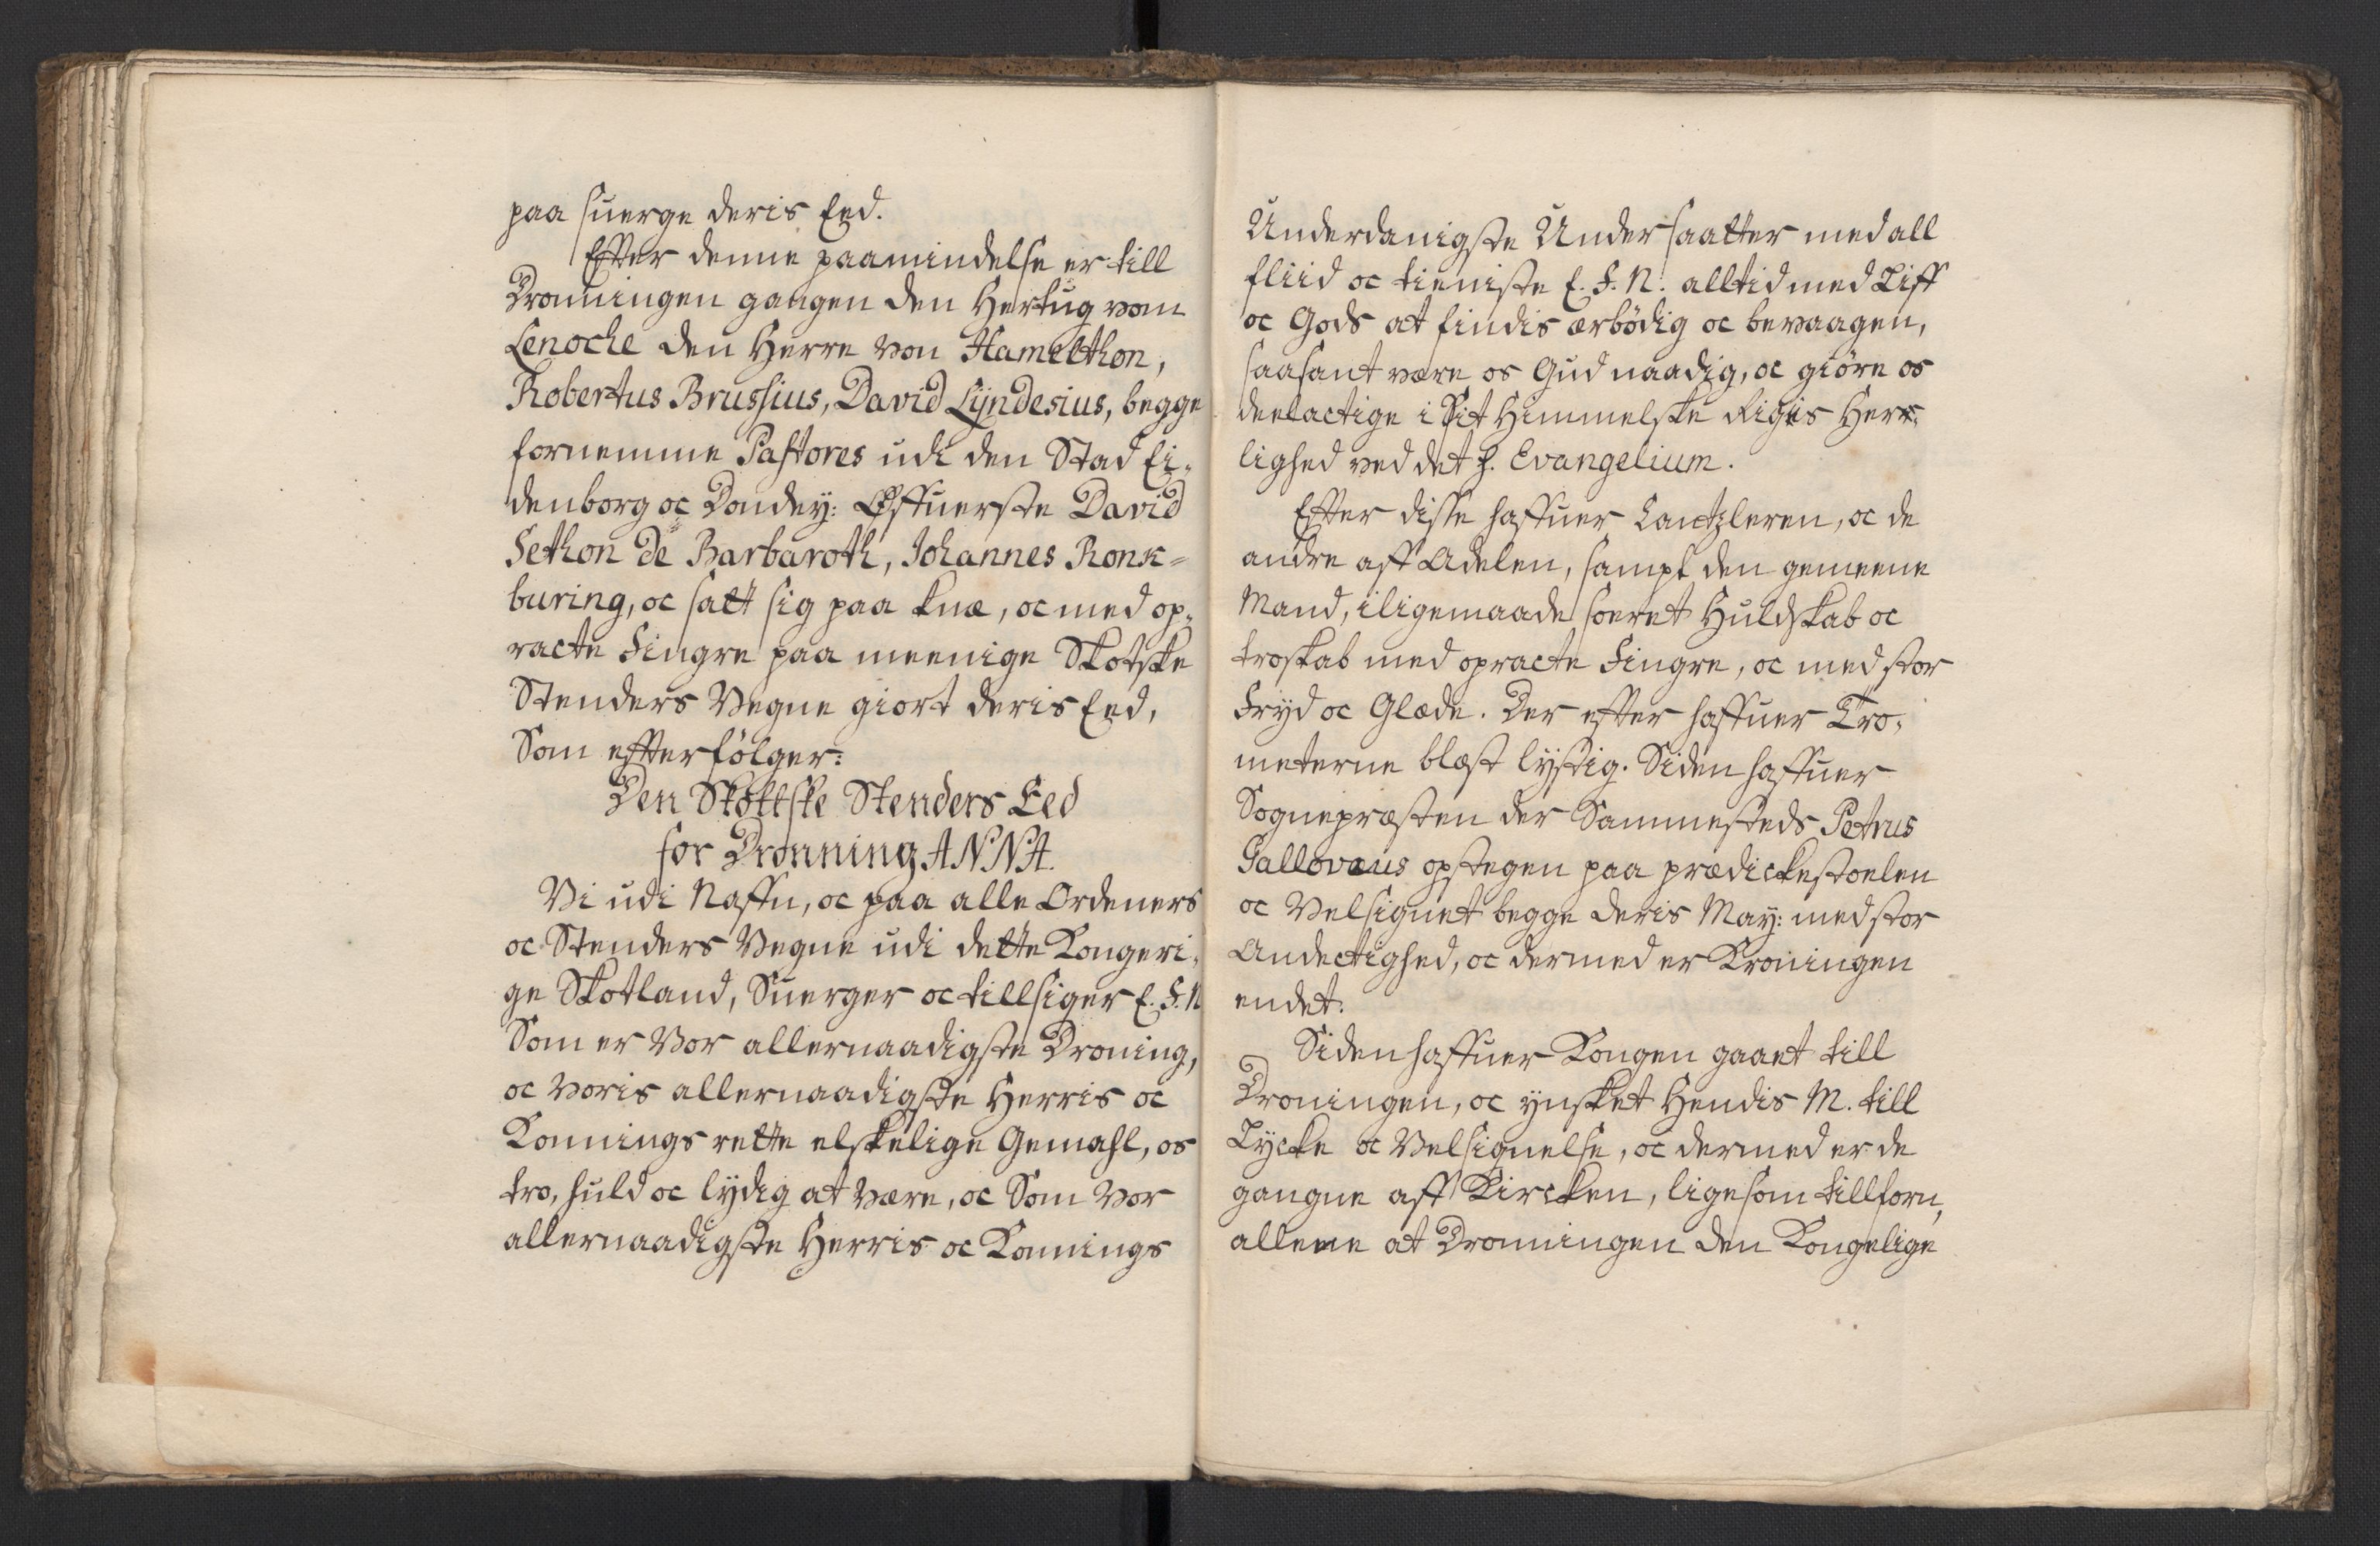 paa suerge deris Eed.
Effter denne paamindelse er till
Dronningen gangen den Hertug von
Lenoche den Herre von Hamelthon,
Robertus Brussius, David Lyndesius, begge
fornemme Pastores udi den Stad Ei-
denborg oc Dondey: Offuerste David
Sethon de Barbaroth, Iohannes Ronk=
buring, oc satt sig paa knæ, oc med op-
racte Fingre paa meenige Skotske
Stenders Vegne giort deris Eed,
Som effterfölger:
Den Skottske Stenders Eed
for Dronning ANNA.
Vi udi Naffn, oc paa alle Ordeners
oc Stenders Vegne udi dette Kongeri-
ge Skotland, Suerger oc tillsiger E. F. N
Som er Vor allernaadigste Droning,
oc Voris allernaadigste Herris oc
Konnings rette elskelige Gemahl, os
tro, huld oc lydig at være, oc Som Vor
allernaadigste Herris oc Konnings
Underdanigste Undersaatter med all
fliid oc tieniste E. F. N. alltid med Liff
oc Gods at findis ærbödig oc bevaagen,
saasant være os Gud naadig, oc giöre os
deelactige i Sit Himmelske Rigis Herr-
lighed ved det h. Evangelium.
Effter disse haffuer Cantzleren, oc de
andre aff Adelen, sampt den gemeene
Mand, iligemaade soeret Huldskab oc
troskab med opracte Fingre, oc med stor
Fryd oc Glæde. Der effter haffuer Tro-
meterne blæst lystig. Siden haffuer
Sognepræsten der Sammesteds Petrus
Gallovæus opstegen paa prædickestoelen
oc Velsignet begge deris May: med stor
Andectighed, oc dermed er Kroningen
endet.
Siden haffuer Kongen gaaet till
Droningen, oc ynsket Hendis M. till
Lycke oc Velsignelse, oc dermed er de
gangne aff Kircken, ligesom tillforn,
allene at Dronningen den Kongelige